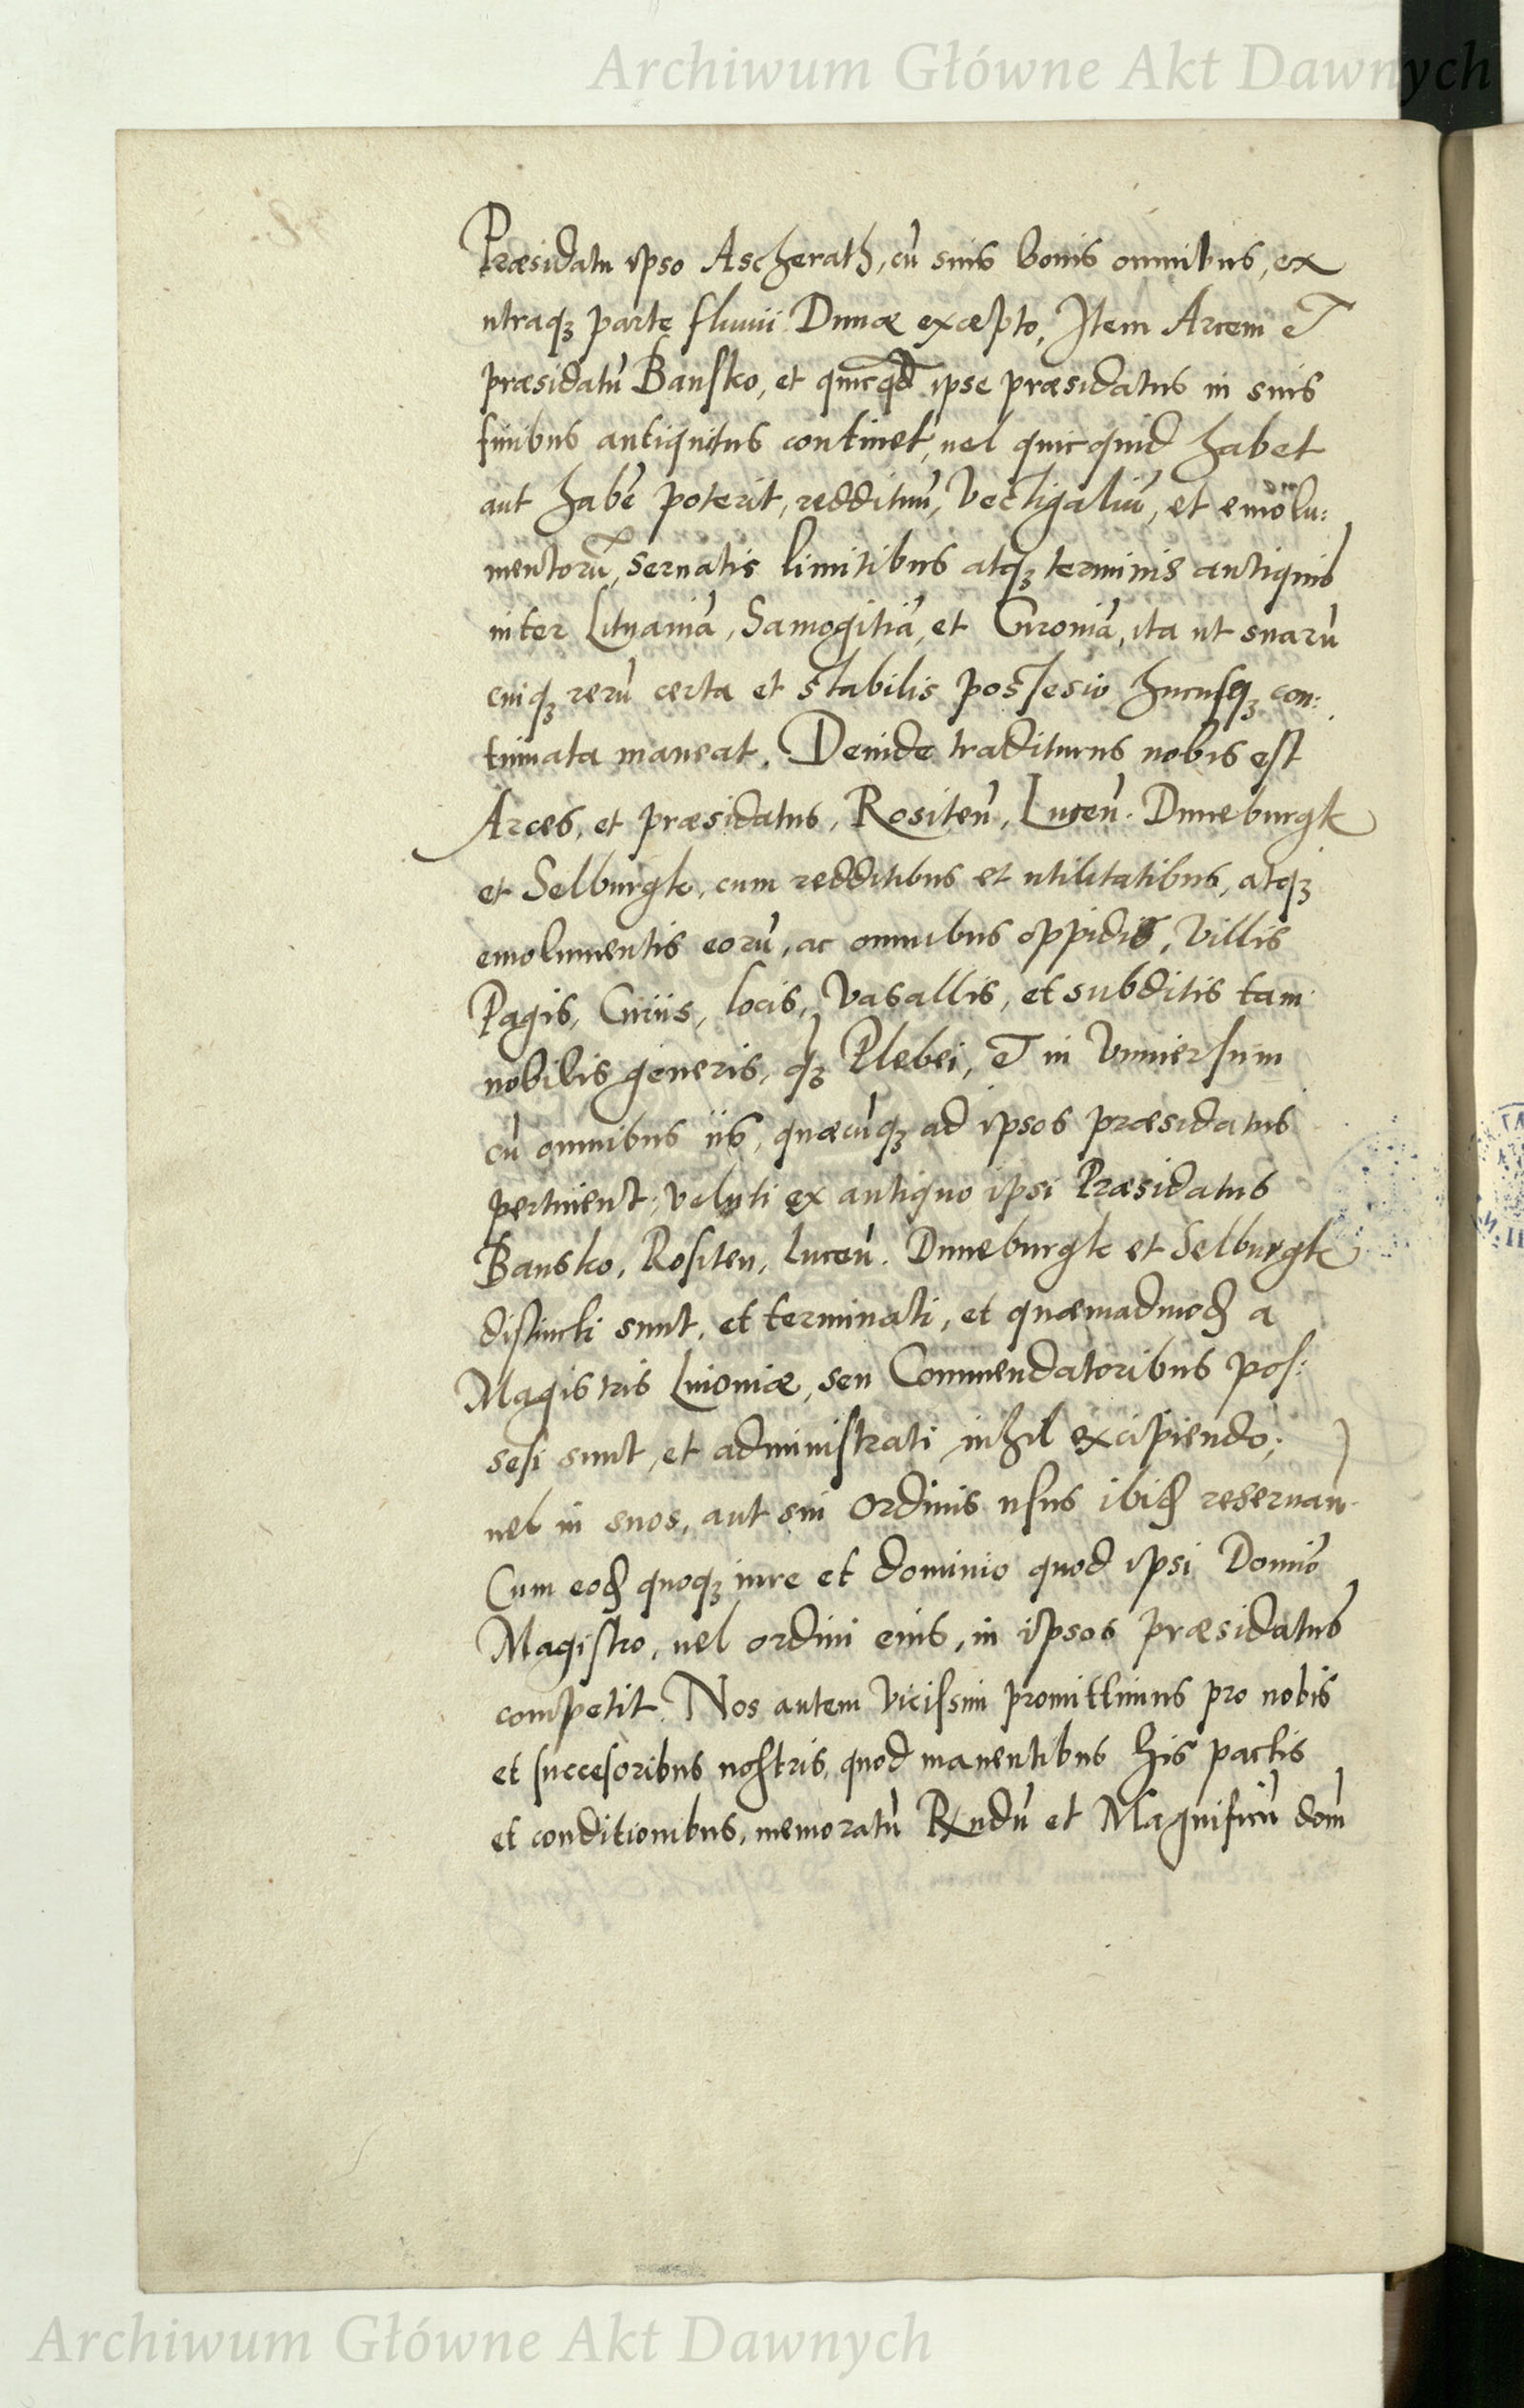 Archiwum Główne Akt Dawnych
Præsidatu ipso Ascherath, cū suis bonis omnibus, ex
utraqꝫ parte fluuii Dunæ excæpto, Item Arcem et
præsidatū Bausko, et quicqd ipse præsidatus in suis
finibus antiquitus continet, uel quicquid habet
aut habē poterit, reddituū, Vectigaliū, et emolu:
mentorū, seruatis limitibus atqꝫ terminis antiquis
inter Lituaniā, Samogitiā, et Curoniā, ita ut suarū
cuiqꝫ rerū certa et stabilis possesio hucusqꝫ con:
tinuata maneat. Deinde traditurus nobis est
Arces, et præsidatus, Rositeñ, Luceñ. Duneburgk
et Selburgk, cum redditibus et utilitatibus, atqꝫ
emolumentis eorū, ac omnibus oppidis, Villis
Pagis, Curiis, locis, Vasallis, et subditis tam
nobilis generis, qꝫ Plebei, et in Vniuersum
cū omnibus iis, quæcūqꝫ ad ipsos præsidatus
pertinent, veluti ex antiquo ipsi Præsidatus
Bausko, Rositen, Luceñ. Duneburgk et Selburgk
distincti sunt, et terminati, et quæmadmod̄ a
Magistris Liuoniæ, seu Commendatoribus pos:
sesi sunt, et administrati nihil excipiendo;
uel in suos, aut sui Ordinis usus ibid̄ reseruan
Cum eod̄ quoqꝫ iure et dominio quod ipsi Domīo
Magistro, uel ordini eius, in ipsos præsidatus
competit. Nos autem Vicissim promittimus pro nobis
et succesoribus nostris, quod manentibus his pactis
et conditionibus, memoratū Rndū et Magnificū dom̄
Archiwum Główne Akt Dawnych